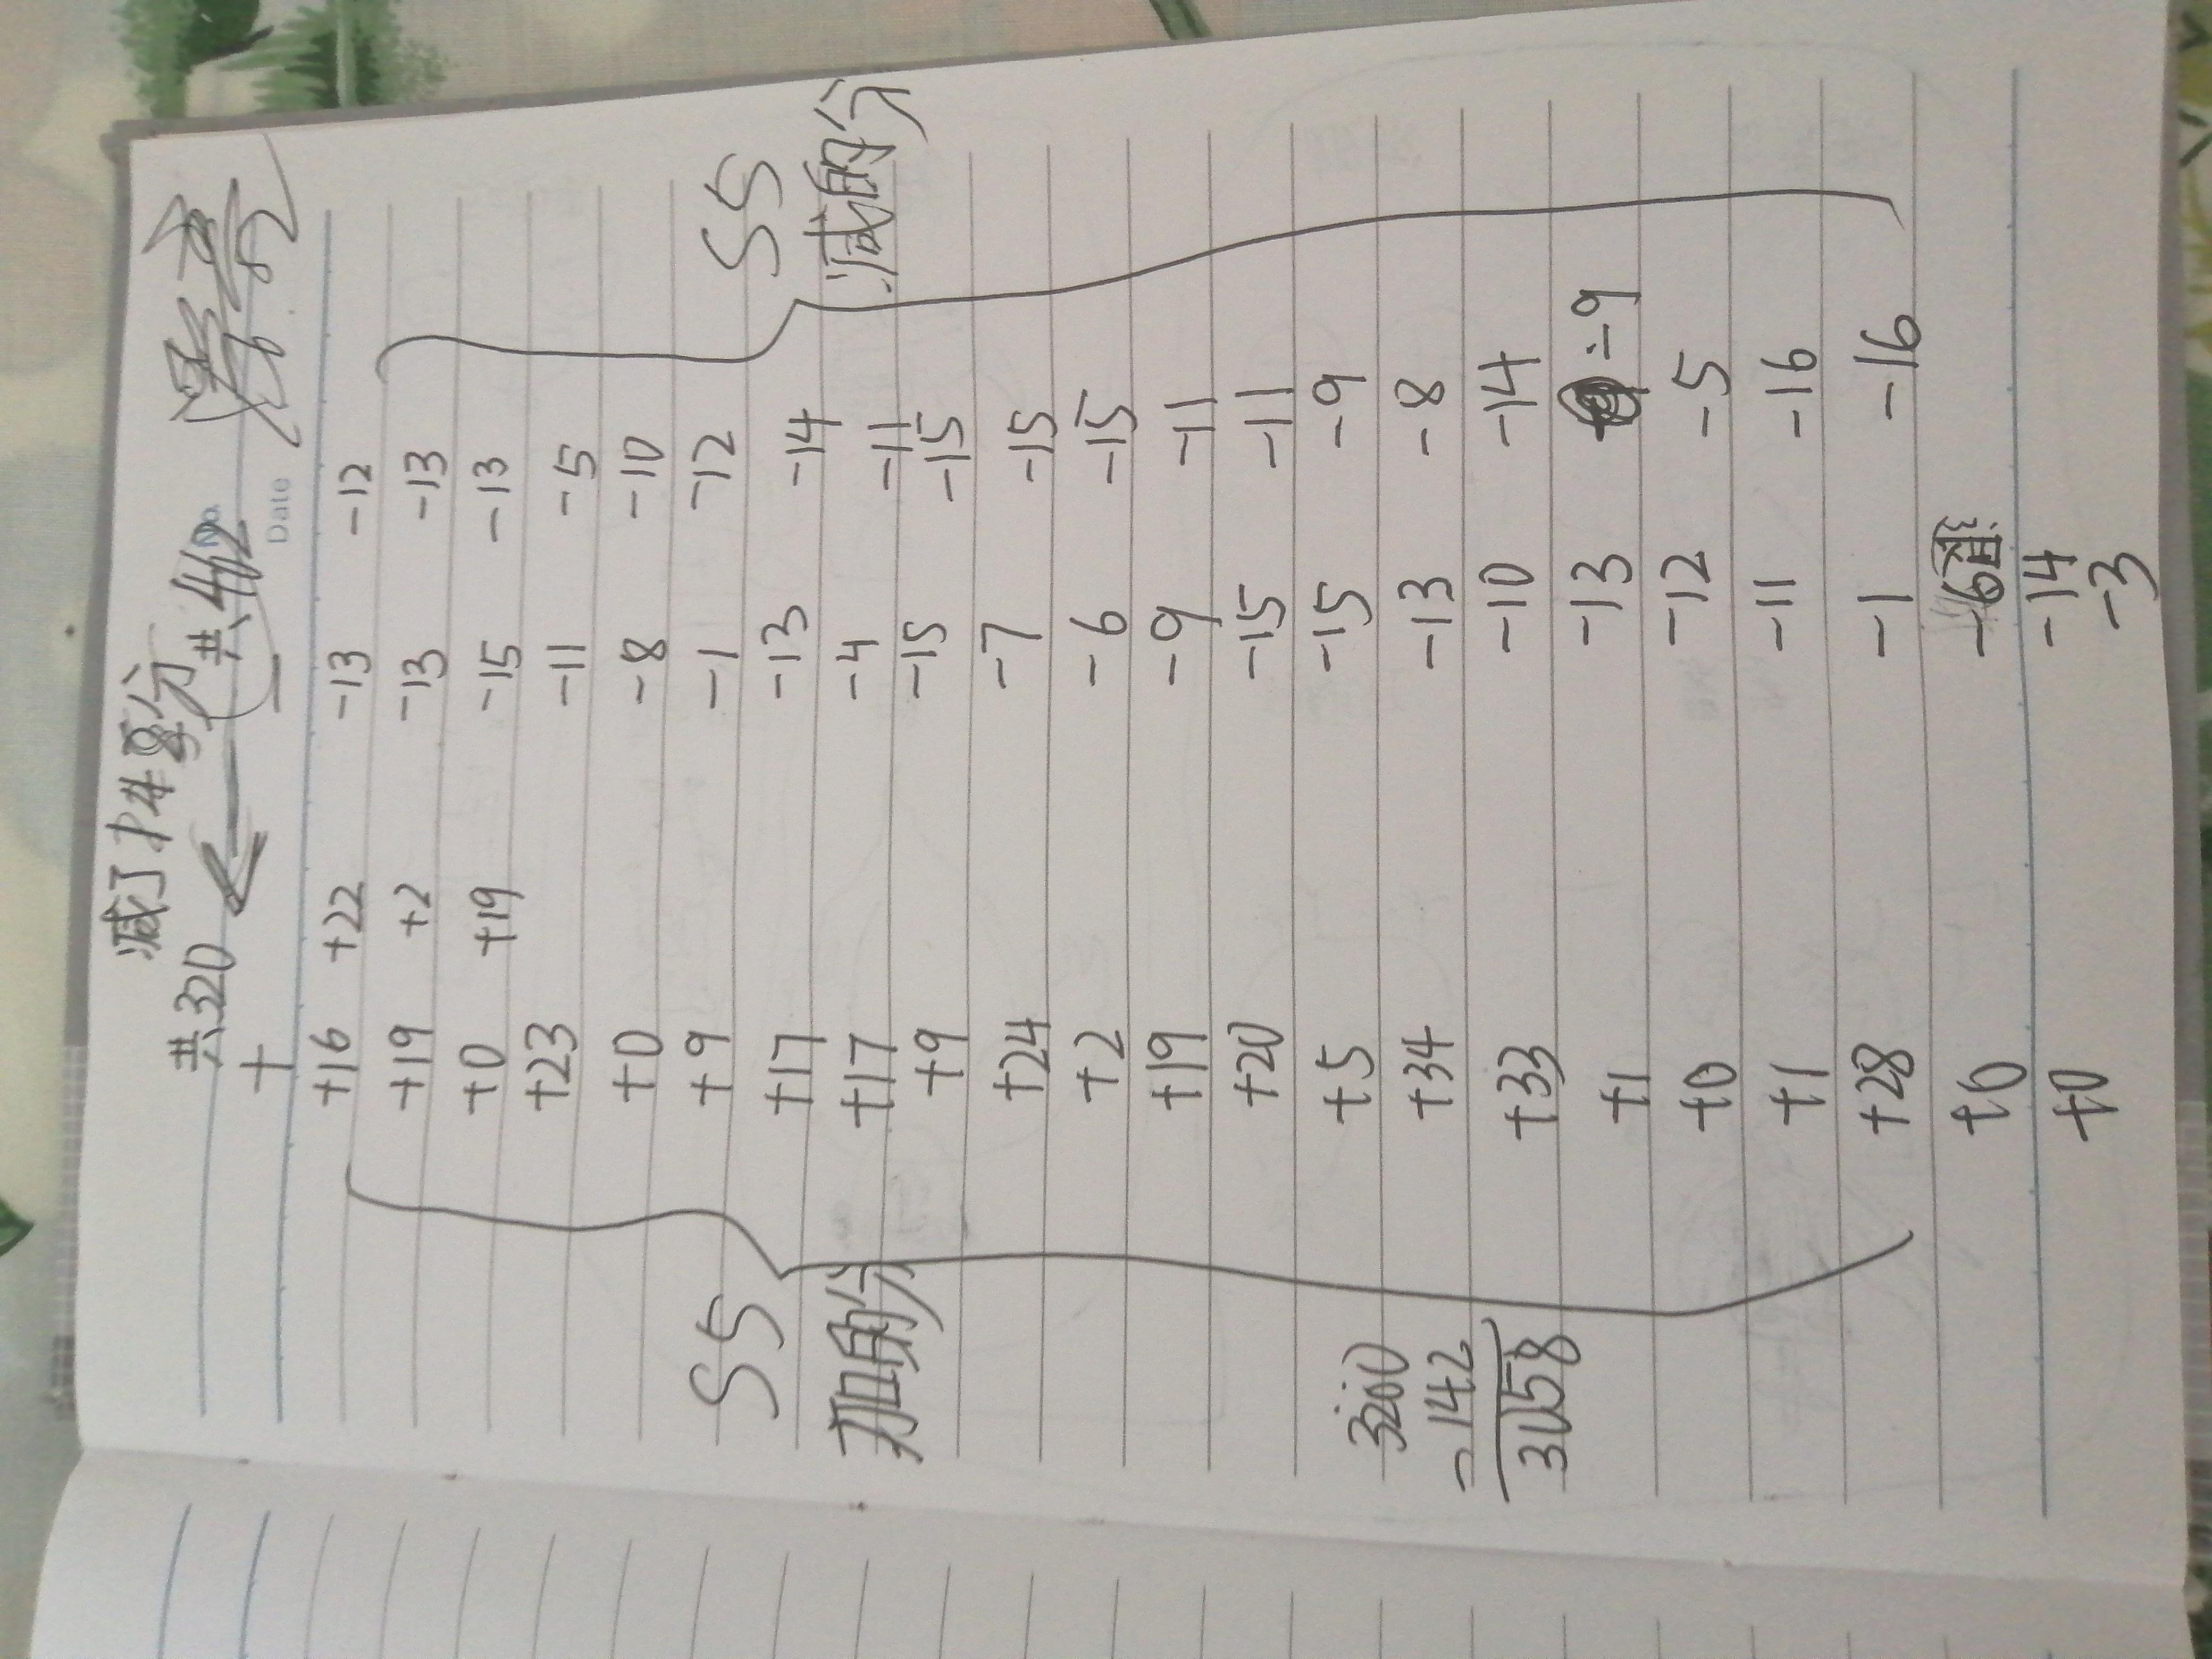 减了分
共320 共462
No.
+ −
Date
+16 +22 -13 -12
+19 +2 -13 -13
+0 +19 -15 -13
+23 -11 -5
+0 -8 -10
S5 +9 -1 -12 S5
+17 -13 -14
加的分 +17 -4 -11 减的分
+9 -15 -15
+24 -7 -15
+2 -6 -15
+19 -9 -11
+20 -15 -11
3200 +5 -15 -9
-142 +34 -13 -8
3058 +33 -10 -14
+1 -13 -9
+0 -12 -5
+1 -11 -16
+28 -1 -16
+0 -6
+0 -14
-3